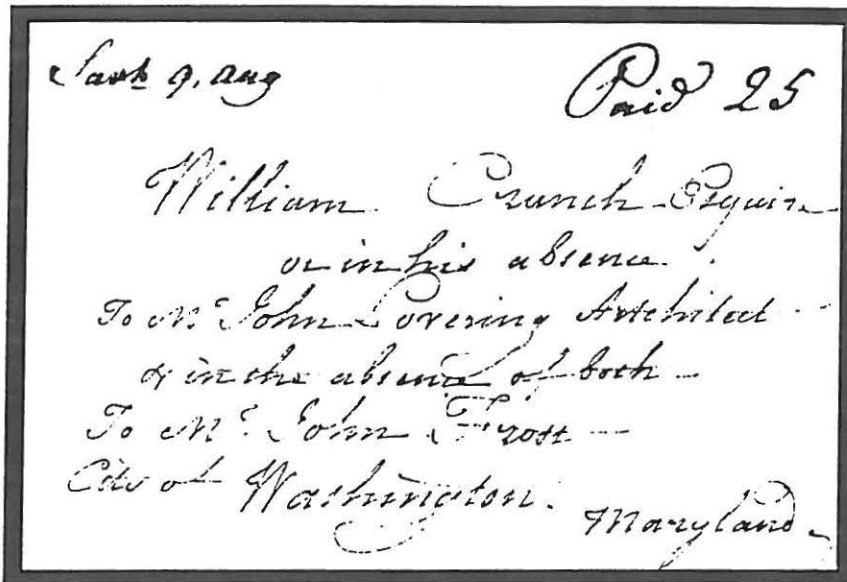 Savh 9, aug
Paid 25
William Crunch Esquire
or in his absence.
To Mr. John Lovering Artchitect
& in the absence of both
To Mr. John Frost
City of Washington.
Maryland